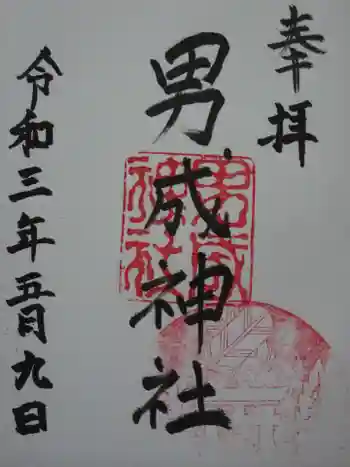 奉拝
男成神社
男成神社
令和三年五月九日